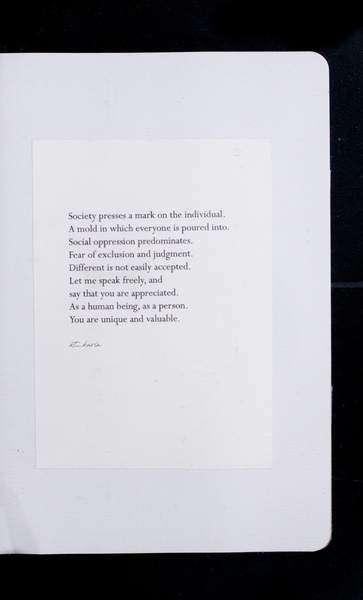 Society presses a mark on the individual.
A mold in which everyone is poured into.
Social oppression predominates.
Fear of exclusion and judgment.
Different is not easily accepted.
Let me speak freely, and
say that you are appreciated.
As a human being, as a person.
You are unique and valuable.